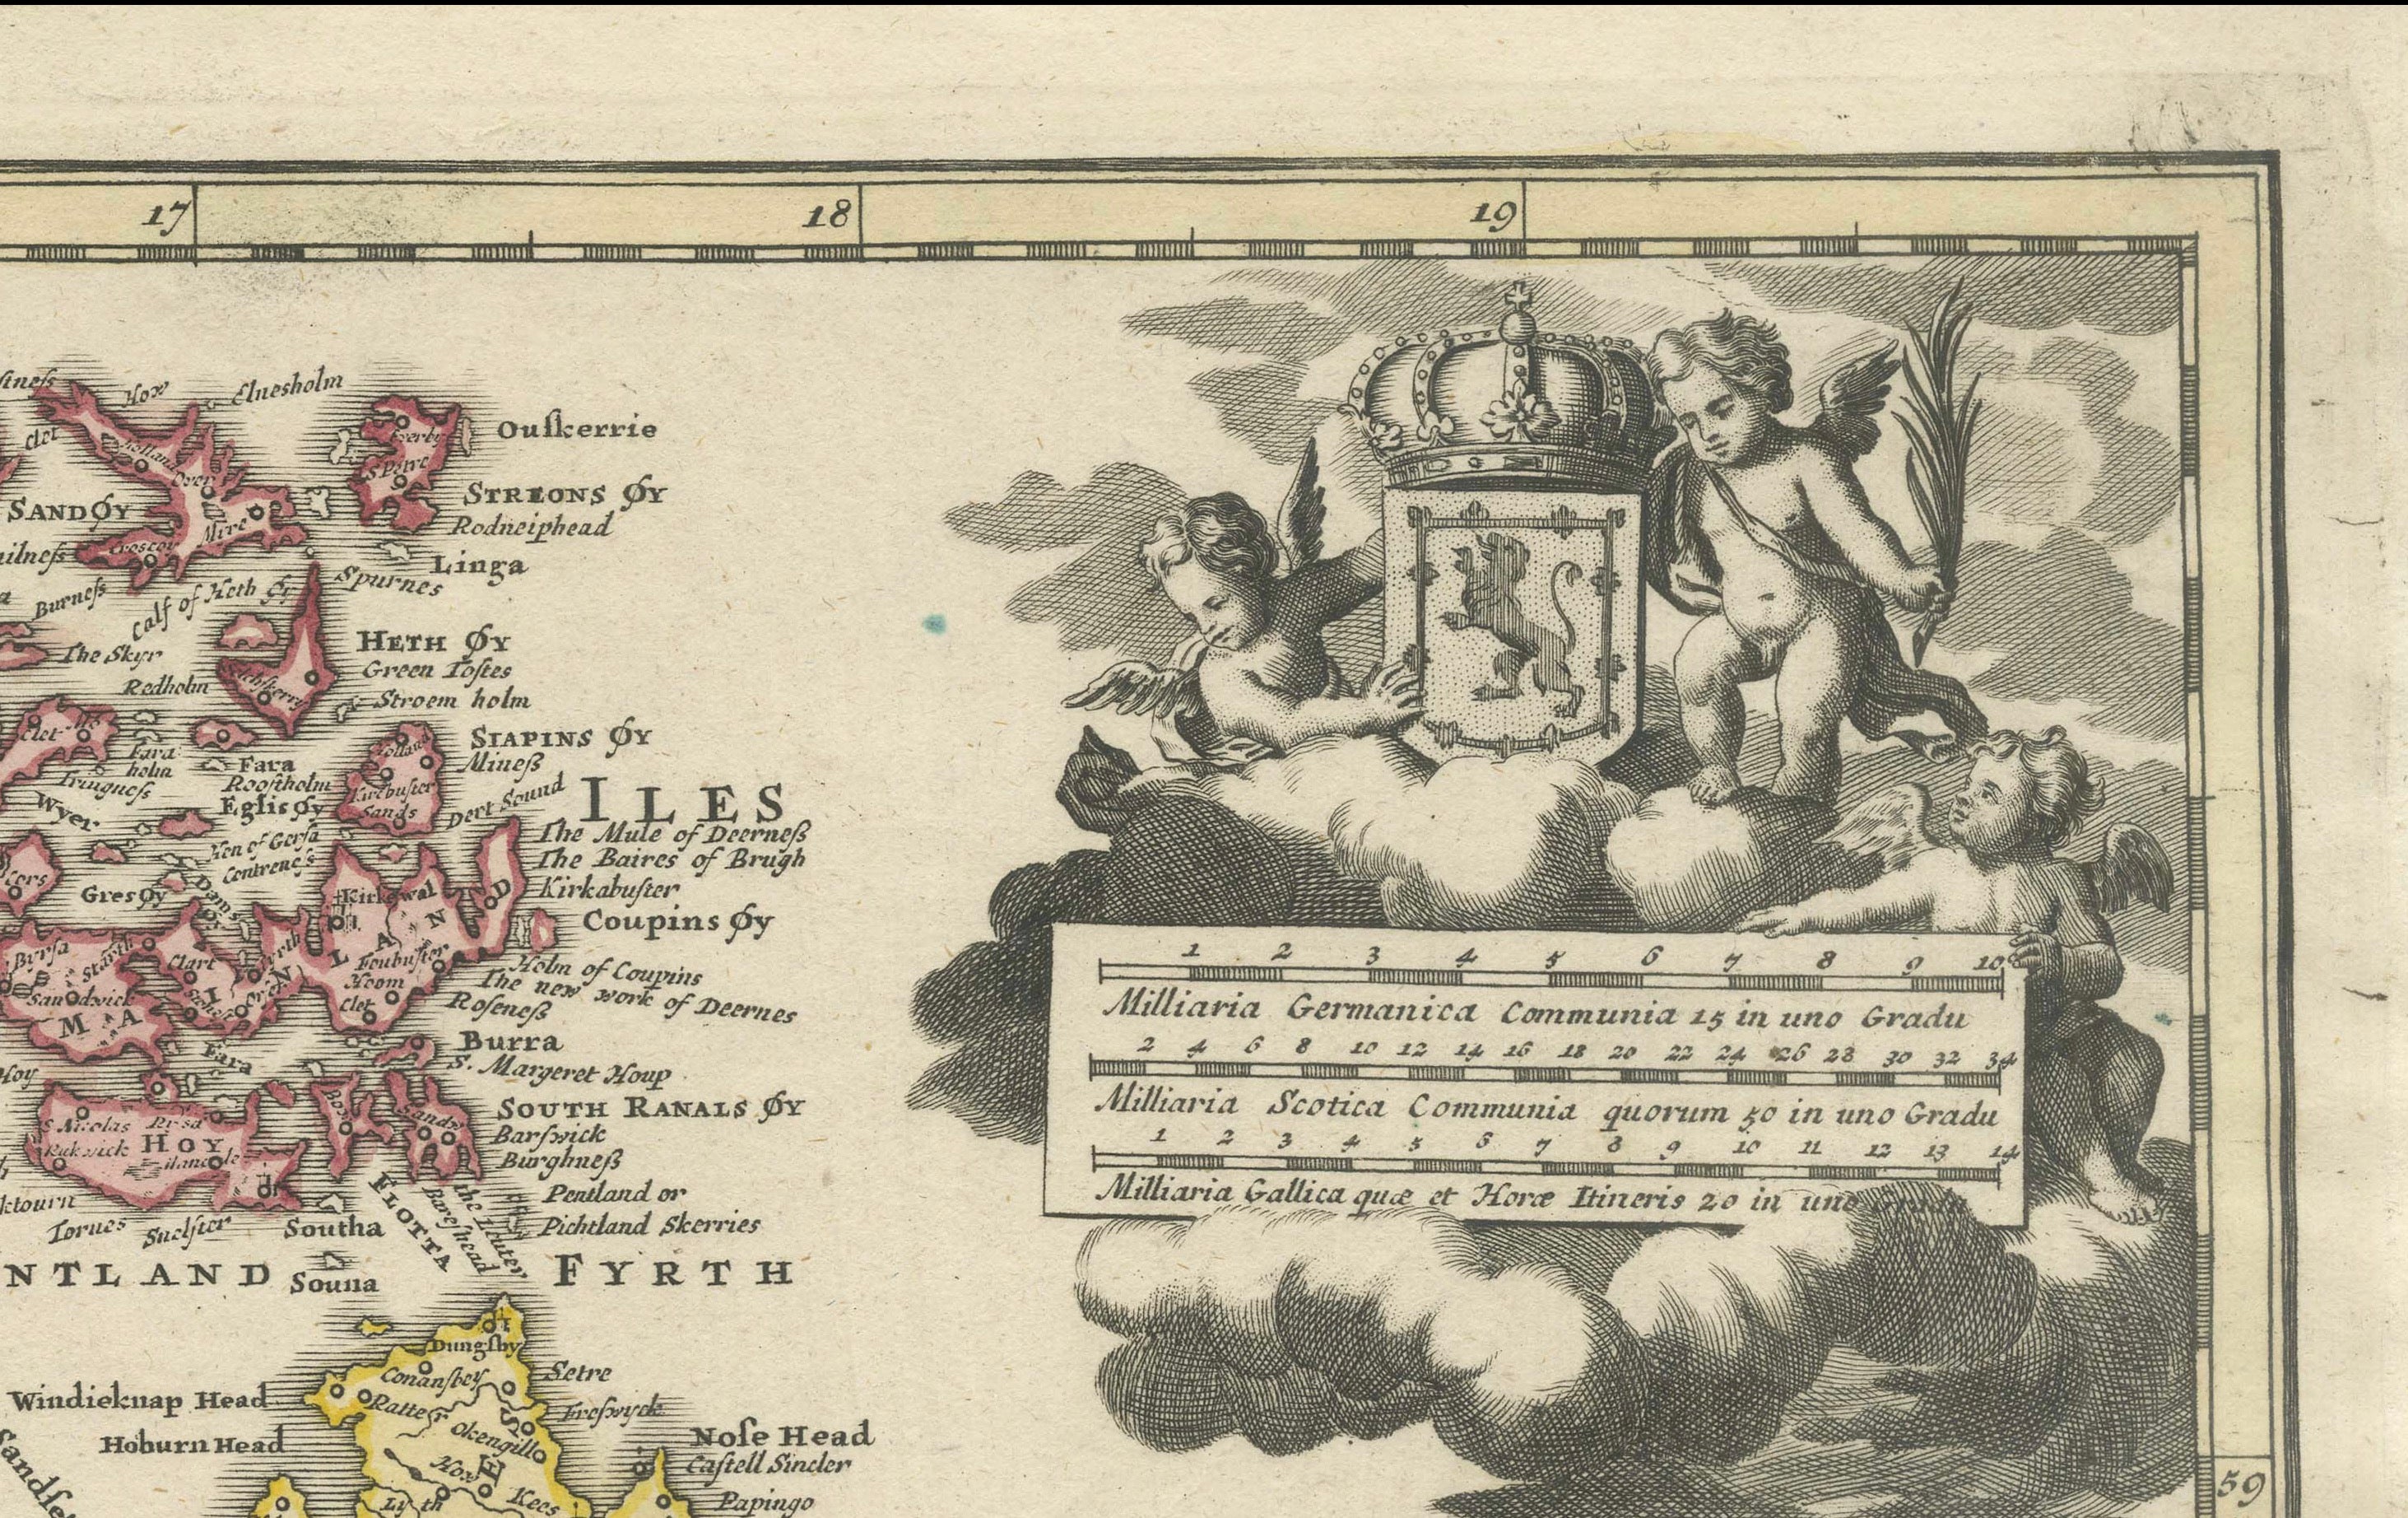 17
18
19
How
Eluesholm
Clet
Ouſkerrie
Everby
Holland
Over
S Petre
SANDØY
STREONS ØY
Mire
Rodneiphead
Linga
Spurnes
Calf of Heth Øy
Burneſs
HETH ØY
The Skyr
Green Toſtes
Redholm
Stroem holm
Clet
STAPINS ØY
Holland
Mineſs
Fara holm
Fara
Rooſtholm
Kirkbuster
Sands
Dert Sound
ILES
Eglisøy
Wyer
The Mule of Deerneſs
Hen of Gersa
The Baires of Brugh
Contreneſs
Gresøy
Dams
Kirkewal
Kirkabuſter
Coupins Øy
Byrsa
Foubuſter
Hoom
Clet
Holm of Coupins
The new work of Deernes
Roſeneſs
Sandwick
MA I N LAND
Fara
Burra
S. Margeret Houp
Hoy
S Nicolas
HOY
SOUTH RANALS ØY
Barſwick
Burghneſs
FLOTTA
Pentland or
Pichtland Skerries
Tornes
Snelſter
Southa
Bareſhead
NTLAND
Souna
FYRTH
Dungſby
Conansbey
Setre
Windieknap Head
Ratter
Freſwyck
Okengill
Hoburn Head
How
Noſe Head
Caſtell Sincler
Lyth
Kees
Papingo
1 2 3 4 5 6 7 8 9 10
Milliaria Germanica Communia 15 in uno Gradu
2 4 6 8 10 12 14 16 18 20 22 24 26 28 30 32 34
Milliaria Scotica Communia quorum 50 in uno Gradu
1 2 3 4 5 6 7 8 9 10 11 12 13 14
Milliaria Gallica quæ et Horæ Itineris 20 in uno Gradu
59